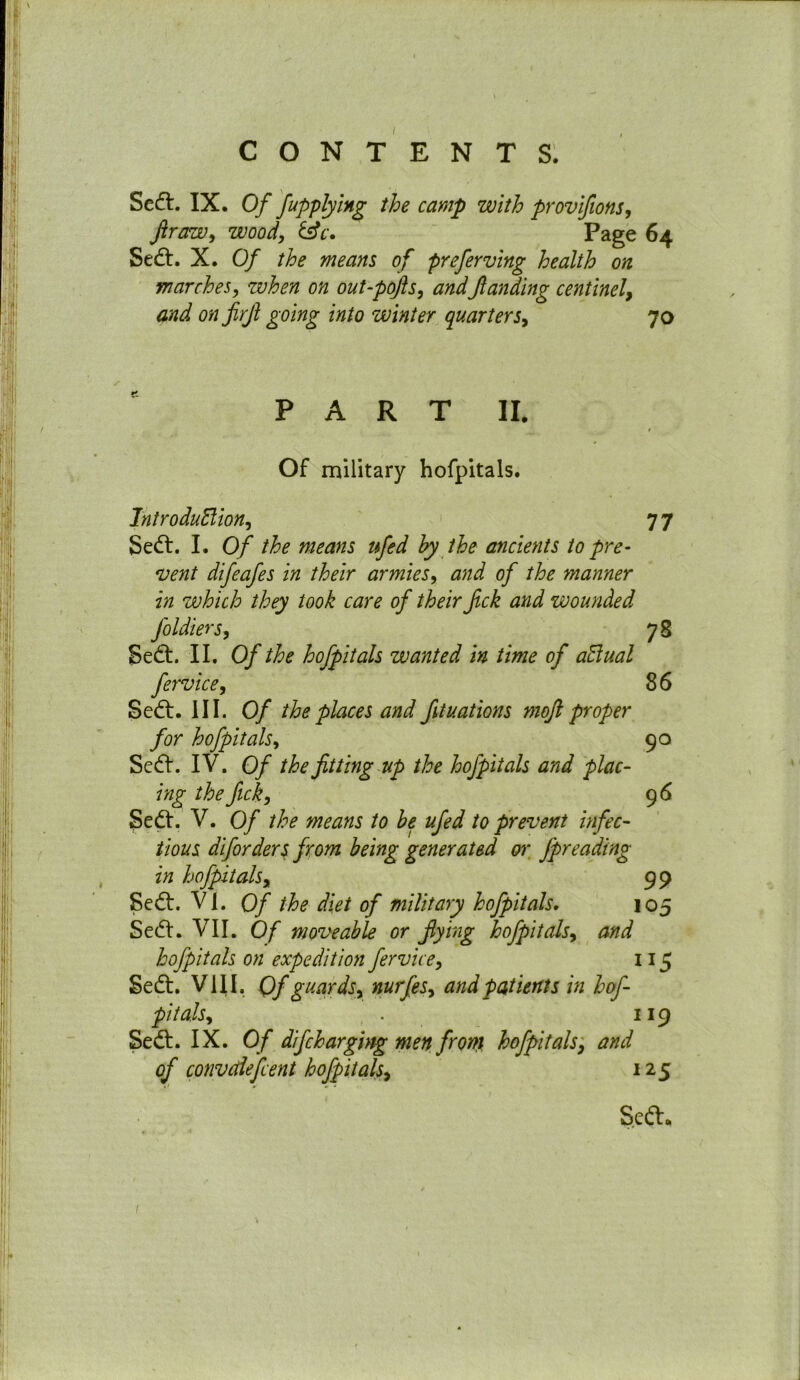 CONTENTS.
Sect. IX. Of ſupplying the camp with proviſions,
ſtraw, wood, &c. Page 64
Sect. X. Of the means of preſerving health on
marches, when on out-poſts, and ſtanding centinel,
and on firſt going into winter quarters, 70
PART II.
Of military hoſpitals.
Introduction, 77
Sect. I. Of the means uſed by the ancients to pre-
vent diſeaſes in their armies, and of the manner
in which they took care of their ſick and wounded
ſoldiers, 78
Sect. II. Of the hoſpitals wanted in time of actual
ſervice, 86
Sect. III. Of the places and ſituations moſt proper
for hoſpitals, 90
Sect. IV. Of the fitting up the hoſpitals and plac-
ing the ſick, 96
Sect. V. Of the means to be uſed to prevent infec-
tious diſorders from being generated or ſpreading
in hoſpitals, 99
Sect. VI. Of the diet of military hoſpitals. 105
Sect. VII. Of moveable or flying hoſpitals, and
hoſpitals on expedition ſervice, 115
Sect. VIII. Of guards, nurſes, and patients in hoſ-
pitals, 119
Sect. IX. Of diſcharging men from hoſpitals, and
of convaleſcent hoſpitals, 125
Sect.